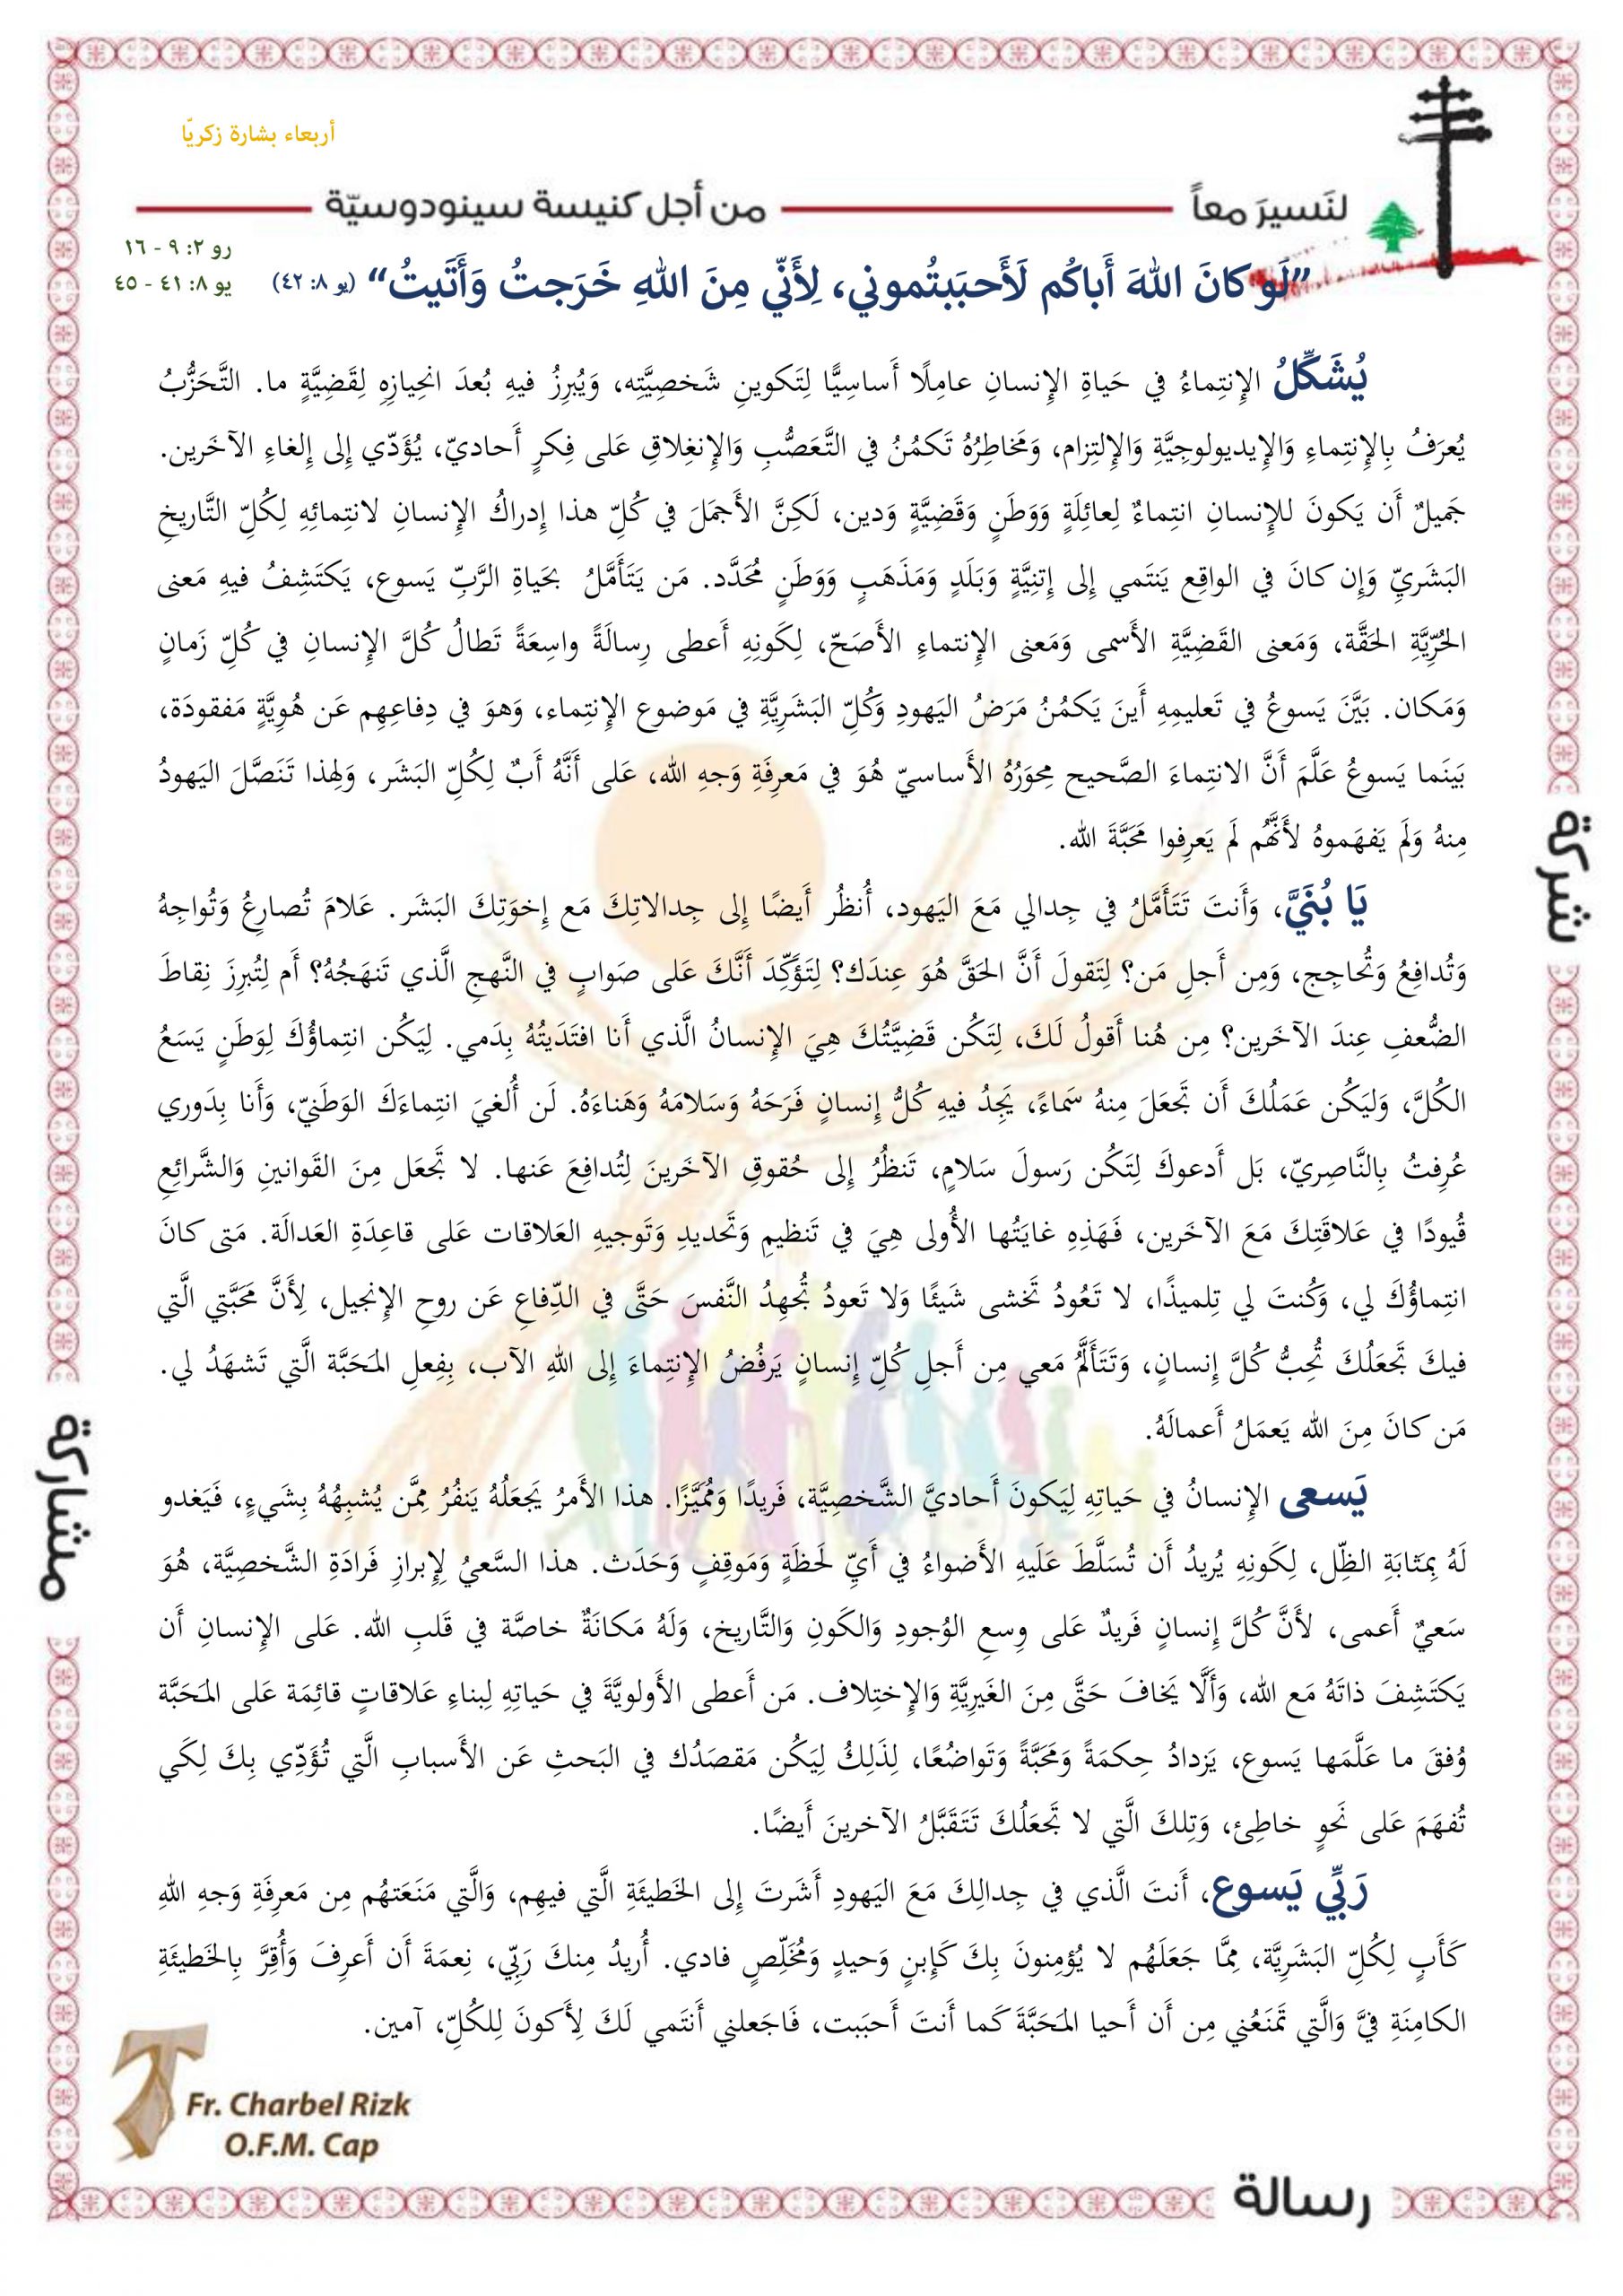 أربعاء بشارة زكريّا
لنَسيرَ معاً
من أجل كنيسة سينودوسيّة
رو ٢: ٩ - ١٦
يو ٨: ٤١ - ٤٥
”لَو كانَ اللهَ أَباكُم لَأَحبَبتُموني، لِأَنّي مِنَ اللهِ خَرَجتُ وَأَتَيتُ“ (يو ٨: ٤٢)
يُشَكِّلُ الإِنتِماءُ في حَياةِ الإِنسانِ عامِلًا أَساسِيًّا لِتَكوينِ شَخصِيَّتِه، وَيُبرِزُ فيهِ بُعدَ انحِيازِهِ لِقَضِيَّةٍ ما. التَّحَزُّبُ
يُعرَفُ بِالإِنتِماءِ وَالإِيديولوجِيَّةِ وَالإِلتِزام، وَمَخاطِرُهُ تَكمُنُ في التَّعَصُّبِ وَالإِنغِلاقِ عَلى فِكرٍ أَحاديّ، يُؤَدّي إِلى إِلغاءِ الآخَرين.
جَميلٌ أَن يَكونَ للإِنسانِ انتِماءٌ لِعائِلَةٍ وَوَطَنٍ وَقَضِيَّةٍ وَدين، لَكِنَّ الأَجمَلَ في كُلِّ هذا إِدراكُ الإِنسانِ لانتِمائِهِ لِكُلِّ التَّاريخِ
البَشَريِّ وَإِن كانَ في الواقِع يَنتَمي إِلى إِتنِيَّةٍ وَبَلَدٍ وَمَذهَبٍ وَوَطَنٍ مُحَدَّد. مَن يَتَأَمَّلُ بحَياةِ الرَّبِّ يَسوع، يَكتَشِفُ فيهِ مَعنى
الحُرِّيَّةِ الحَقَّة، وَمَعنى القَضِيَّةِ الأَسمى وَمَعنى الإِنتماءِ الأَصَحّ، لِكَونِهِ أَعطى رِسالَةً واسِعَةً تَطالُ كُلَّ الإِنسانِ في كُلِّ زَمانٍ
وَمَكان. بَيَّنَ يَسوعُ في تَعليمِهِ أَينَ يَكمُنُ مَرَضُ اليَهودِ وَكُلِّ البَشَرِيَّةِ في مَوضوع الإِنتِماء، وَهوَ في دِفاعِهِم عَن هُوِيَّةٍ مَفقودَة،
بَينَما يَسوعُ عَلَّمَ أَنَّ الانتِماءَ الصَّحيح مِحوَرُهُ الأَساسيّ هُوَ في مَعرِفَةِ وَجهِ الله، عَلى أَنَّهُ أَبٌ لِكُلِّ البَشَر، وَلِهذا تَنَصَّلَ اليَهودُ
مِنهُ وَلَم يَفهَموهُ لأَنَّهُم لَم يَعرِفوا مَحَبَّةَ الله.
يَا بُنَيَّ، وَأَنتَ تَتَأَمَّلُ في جِدالي مَعَ اليَهود، أُنظُر أَيضًا إِلى جِدالاتِكَ مَع إِخوَتِكَ البَشَر. عَلامَ تُصارِعُ وَتُواجِهُ
وَتُدافِعُ وَتُحاجِج، وَمِن أَجلِ مَن؟ لِتَقولَ أَنَّ الحَقَّ هُوَ عِندَك؟ لِتَؤَكِّدَ أَنَّكَ عَلى صَوابٍ في النَّهجِ الَّذي تَنهَجُهُ؟ أَم لِتُبرِزَ نِقاطَ
الضُّعفِ عِندَ الآخَرين؟ مِن هُنا أَقولُ لَكَ، لِتَكُن قَضِيَّتُكَ هِيَ الإِنسانُ الَّذي أَنا افتَدَيتُهُ بِدَمي. لِيَكُن انتِماؤُكَ لِوَطَنٍ يَسَعُ
الكُلَّ، وَليَكُن عَمَلُكَ أَن تَجعَلَ مِنهُ سَماءً، يَجِدُ فيهِ كُلُّ إِنسانٍ فَرَحَهُ وَسَلامَهُ وَهَناءَهُ. لَن أُلغيَ انتِماءَكَ الوَطَنيّ، وَأَنا بِدَوري
عُرِفتُ بِالنَّاصِريّ، بَل أَدعوكَ لِتَكُن رَسولَ سَلامٍ، تَنظُرُ إِلى حُقوقِ الآخَرينَ لِتُدافِعَ عَنها. لا تَجعَل مِنَ القَوانينِ وَالشَّرائِعِ
قُيودًا في عَلاقَتِكَ مَعَ الآخَرين، فَهَذِهِ غايَتُها الأُولى هِيَ في تَنظيمِ وَتَحديدِ وَتَوجيهِ العَلاقات عَلى قاعِدَةِ العَدالَة. مَتى كانَ
انتِماؤُكَ لي، وَكُنتَ لي تِلميذًا، لا تَعُودُ تَخشى شَيئًا وَلا تَعودُ تُجهِدُ النَّفسَ حَتَّى في الدِّفاعِ عَن روحِ الإِنجيل، لِأَنَّ مَحَبَّتي الَّتي
فيكَ تَجعَلُكَ تُحِبُّ كُلَّ إِنسانٍ، وَتَتَأَلَّمُ مَعي مِن أَجلِ كُلِّ إِنسانٍ يَرفُضُ الإِنتِماءَ إِلى اللهِ الآب، بِفِعلِ المَحَبَّة الَّتي تَشهَدُ لي.
مَن كانَ مِنَ الله يَعمَلُ أَعمالَهُ.
يَسعى الإِنسانُ في حَياتِهِ لِيَكونَ أَحاديَّ الشَّخصِيَّة، فَريدًا وَمُمَيَّزًا. هذا الأَمرُ يَجعَلُهُ يَنفُرُ مِمَّن يُشبِهُهُ بِشَيءٍ، فَيَغدو
لَهُ بِمَثابَةِ الظِّل، لِكَونِهِ يُريدُ أَن تُسَلَّطَ عَلَيهِ الأَضواءُ في أَيِّ لَحظَةٍ وَمَوقِفٍ وَحَدَث. هذا السَّعيُ لِإِبرازِ فَرادَةِ الشَّخصِيَّة، هُوَ
سَعيٌ أَعمى، لأَنَّ كُلَّ إِنسانٍ فَريدٌ عَلى وِسعِ الوُجودِ وَالكَونِ وَالتَّاريخ، وَلَهُ مَكانَةٌ خاصَّة في قَلبِ الله. عَلى الإِنسانِ أَن
يَكتَشِفَ ذاتَهُ مَع الله، وَأَلَّا يَخافَ حَتَّى مِنَ الغَيرِيَّةِ وَالإِختِلاف. مَن أَعطى الأَولويَّةَ في حَياتِهِ لِبناءِ عَلاقاتٍ قائِمَة عَلى المَحَبَّة
وُفقَ ما عَلَّمَها يَسوع، يَزدادُ حِكمَةً وَمَحَبَّةً وَتَواضُعًا، لِذَلِكُ لِيَكُن مَقصَدُك في البَحثِ عَن الأَسبابِ الَّتي تُؤَدّي بِكَ لِكَي
تُفهَمَ عَلى نَحوٍ خاطِئ، وَتِلكَ الَّتي لا تَجعَلُكَ تَتَقَبَّلُ الآخرينَ أَيضًا.
رَبّي يَسوع، أَنتَ الَّذي في جِدالِكَ مَعَ اليَهودِ أَشَرتَ إِلى الخَطيئَةِ الَّتي فيهِم، وَالَّتي مَنَعَتهُم مِن مَعرِفَةِ وَجهِ اللهِ
كَأَبٍ لِكُلِّ البَشَرِيَّة، مِمَّا جَعَلَهُم لا يُؤمِنونَ بِكَ كَإِبنٍ وَحيدٍ وَمُخَلِّصٍ فادي. أُريدُ مِنكَ رَبّي، نِعمَةَ أَن أَعرِفَ وَأُقِرَّ بِالخَطيئَةِ
الكامِنَةِ فيَّ وَالَّتي تَمنَعُني مِن أَن أَحيا المَحَبَّةَ كَما أَنتَ أَحبَبت، فَاجَعلني أَنتَمي لَكَ لِأَكونَ لِلكُلِّ، آمين.
شركة
مشاركة
Fr. Charbel Rizk
O.F.M. Cap
رسالة